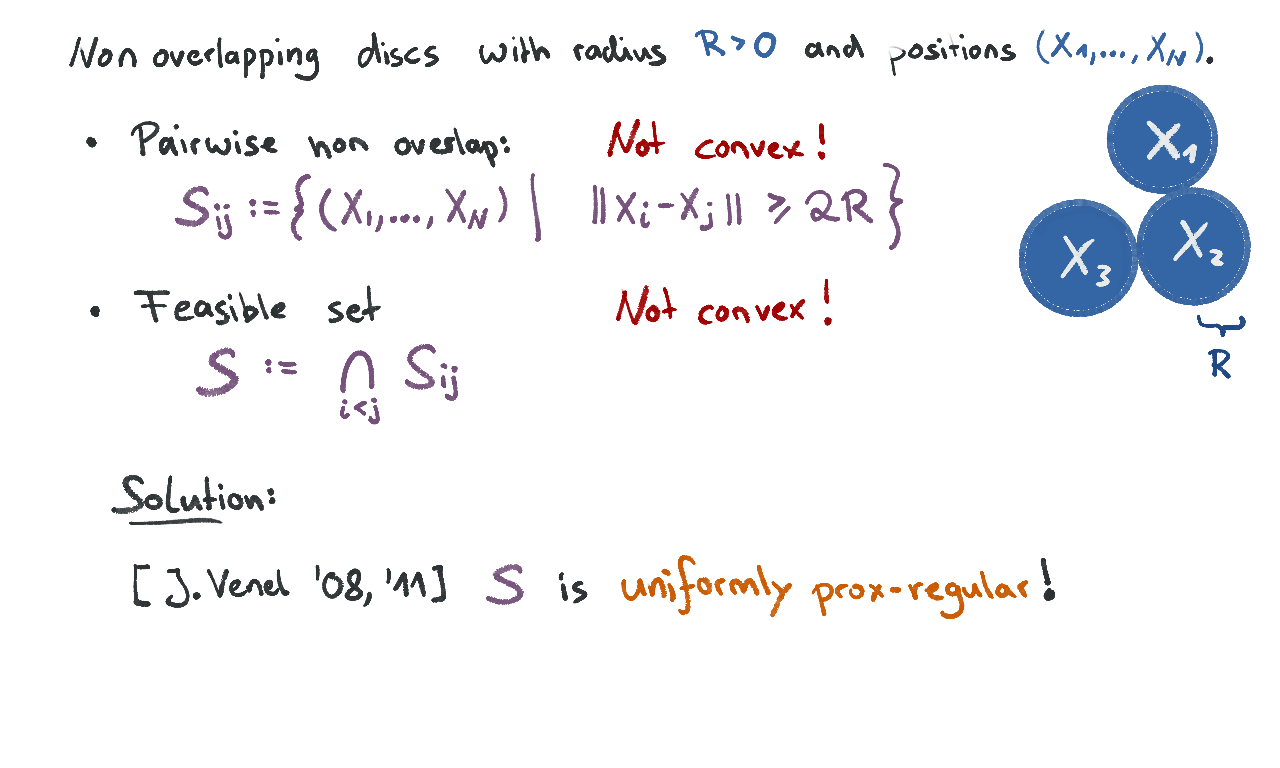 Non overlapping discs with radius R>0 and positions (X₁,..., X_N).
• Pairwise non overlap: Not convex!
S_ij := {(X₁,..., X_N) | ||X_i-X_j|| ⩾ 2R}
• Feasible set Not convex!
S := ⋂_{i<j} S_ij
X₁
X₂
X₃
R
Solution:
[J. Venel '08, '11] S is uniformly prox-regular!